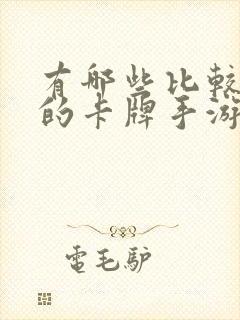 有哪些比较
的卡牌手游
電毛驴